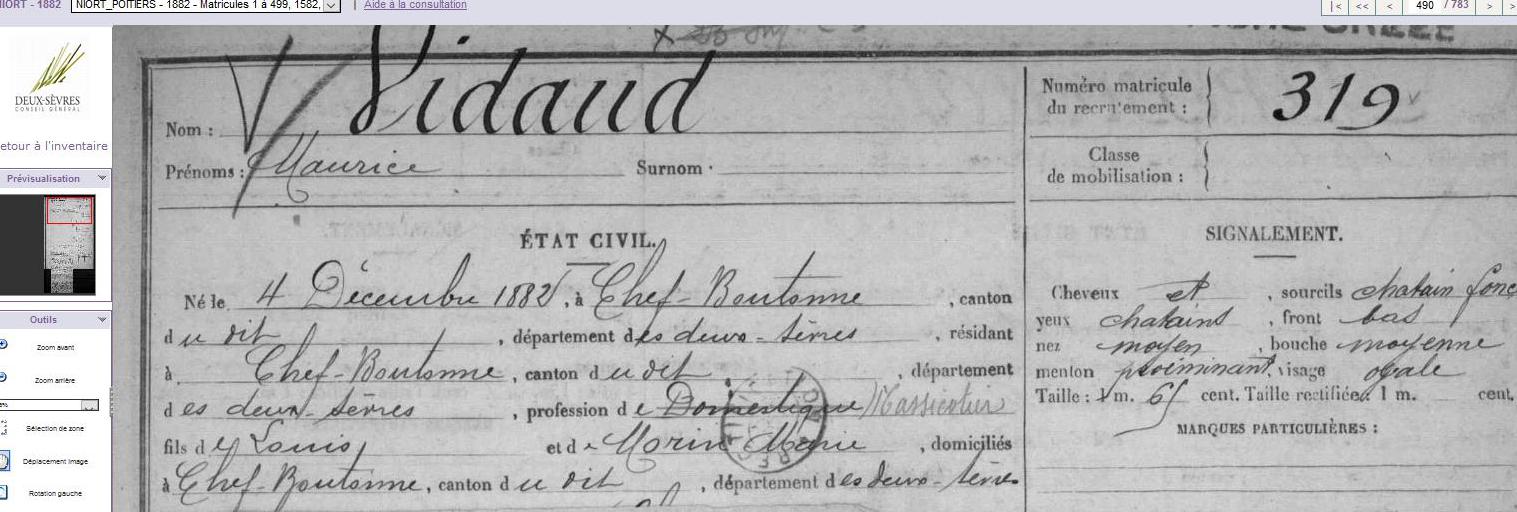 NIORT - 1882 NIORT_POITIERS - 1882 - Matricules 1 à 499, 1582, | Aide à la consultation |< << < 490 / 783 > >
DEUX-SÈVRES
CONSEIL GÉNÉRAL
etour à l'inventaire
Prévisualisation
Outils
Zoom avant
Zoom arrière
Sélection de zone
Déplacement image
Rotation gauche
Nom : Vidaud
Prénoms : Maurice Surnom
ÉTAT CIVIL.
Né le 4 Décembre 1882, à Chef-Boutonne, canton
du dit, département des deux-sèvres, résidant
à Chef-Boutonne, canton du dit, département
des deux-sèvres, profession de Domestique Massicotier
fils de Louis et de Morin Marie, domiciliés
à Chef-Boutonne, canton du dit, département des deux-sèvres
Numéro matricule
du recrutement : 319
Classe
de mobilisation :
SIGNALEMENT.
Cheveux et, sourcils chatain fonc
yeux chatains, front bas
nez moyen, bouche moyenne
menton proéminant, visage ovale
Taille : 1 m. 65 cent. Taille rectifiée : 1 m. cent.
MARQUES PARTICULIÈRES :